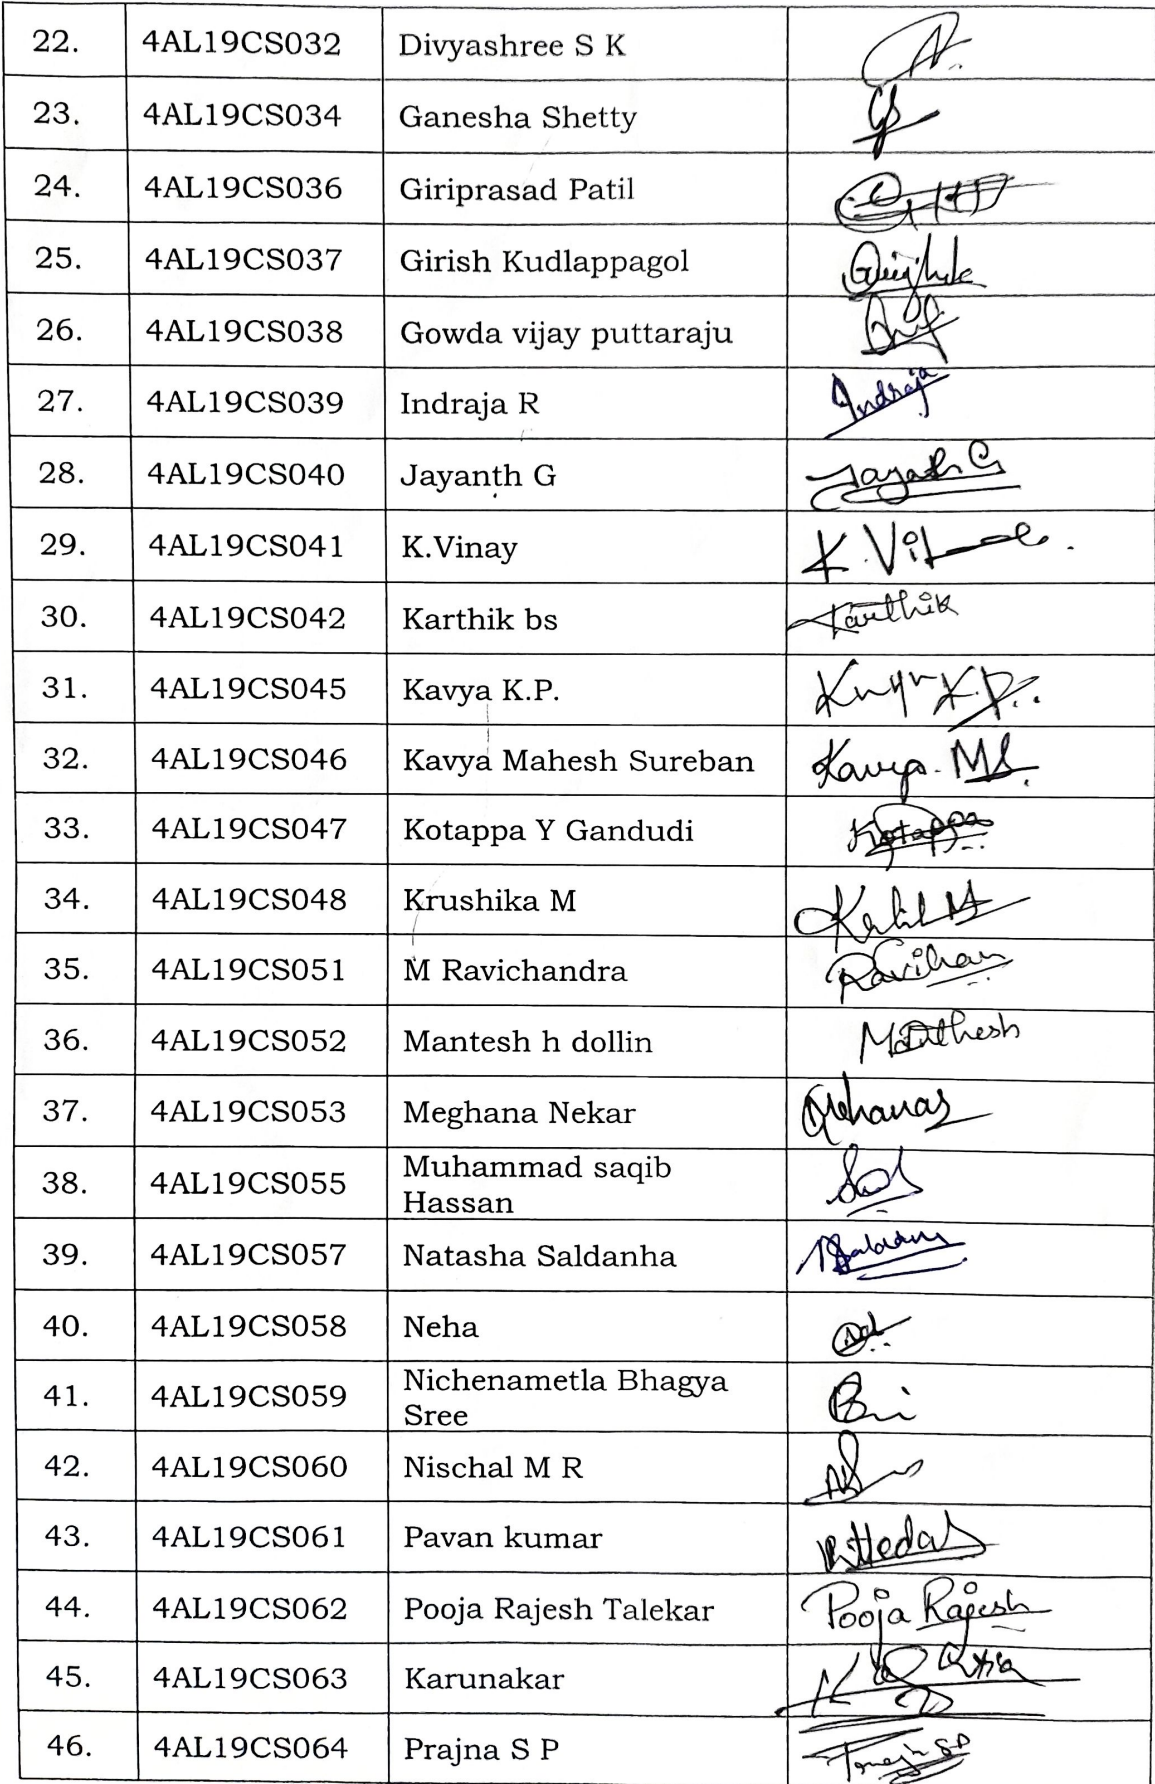 22. 4AL19CS032 Divyashree S K
23. 4AL19CS034 Ganesha Shetty
24. 4AL19CS036 Giriprasad Patil
25. 4AL19CS037 Girish Kudlappagol
26. 4AL19CS038 Gowda vijay puttaraju
27. 4AL19CS039 Indraja R Indraja
28. 4AL19CS040 Jayanth G
29. 4AL19CS041 K.Vinay
30. 4AL19CS042 Karthik bs Karthik
31. 4AL19CS045 Kavya K.P.
32. 4AL19CS046 Kavya Mahesh Sureban
33. 4AL19CS047 Kotappa Y Gandudi Kotappa
34. 4AL19CS048 Krushika M
35. 4AL19CS051 M Ravichandra
36. 4AL19CS052 Mantesh h dollin
37. 4AL19CS053 Meghana Nekar
38. 4AL19CS055 Muhammad saqib
Hassan
39. 4AL19CS057 Natasha Saldanha
40. 4AL19CS058 Neha
41. 4AL19CS059 Nichenametla Bhagya
Sree
42. 4AL19CS060 Nischal M R
43. 4AL19CS061 Pavan kumar
44. 4AL19CS062 Pooja Rajesh Talekar Pooja Rajesh
45. 4AL19CS063 Karunakar
46. 4AL19CS064 Prajna S P